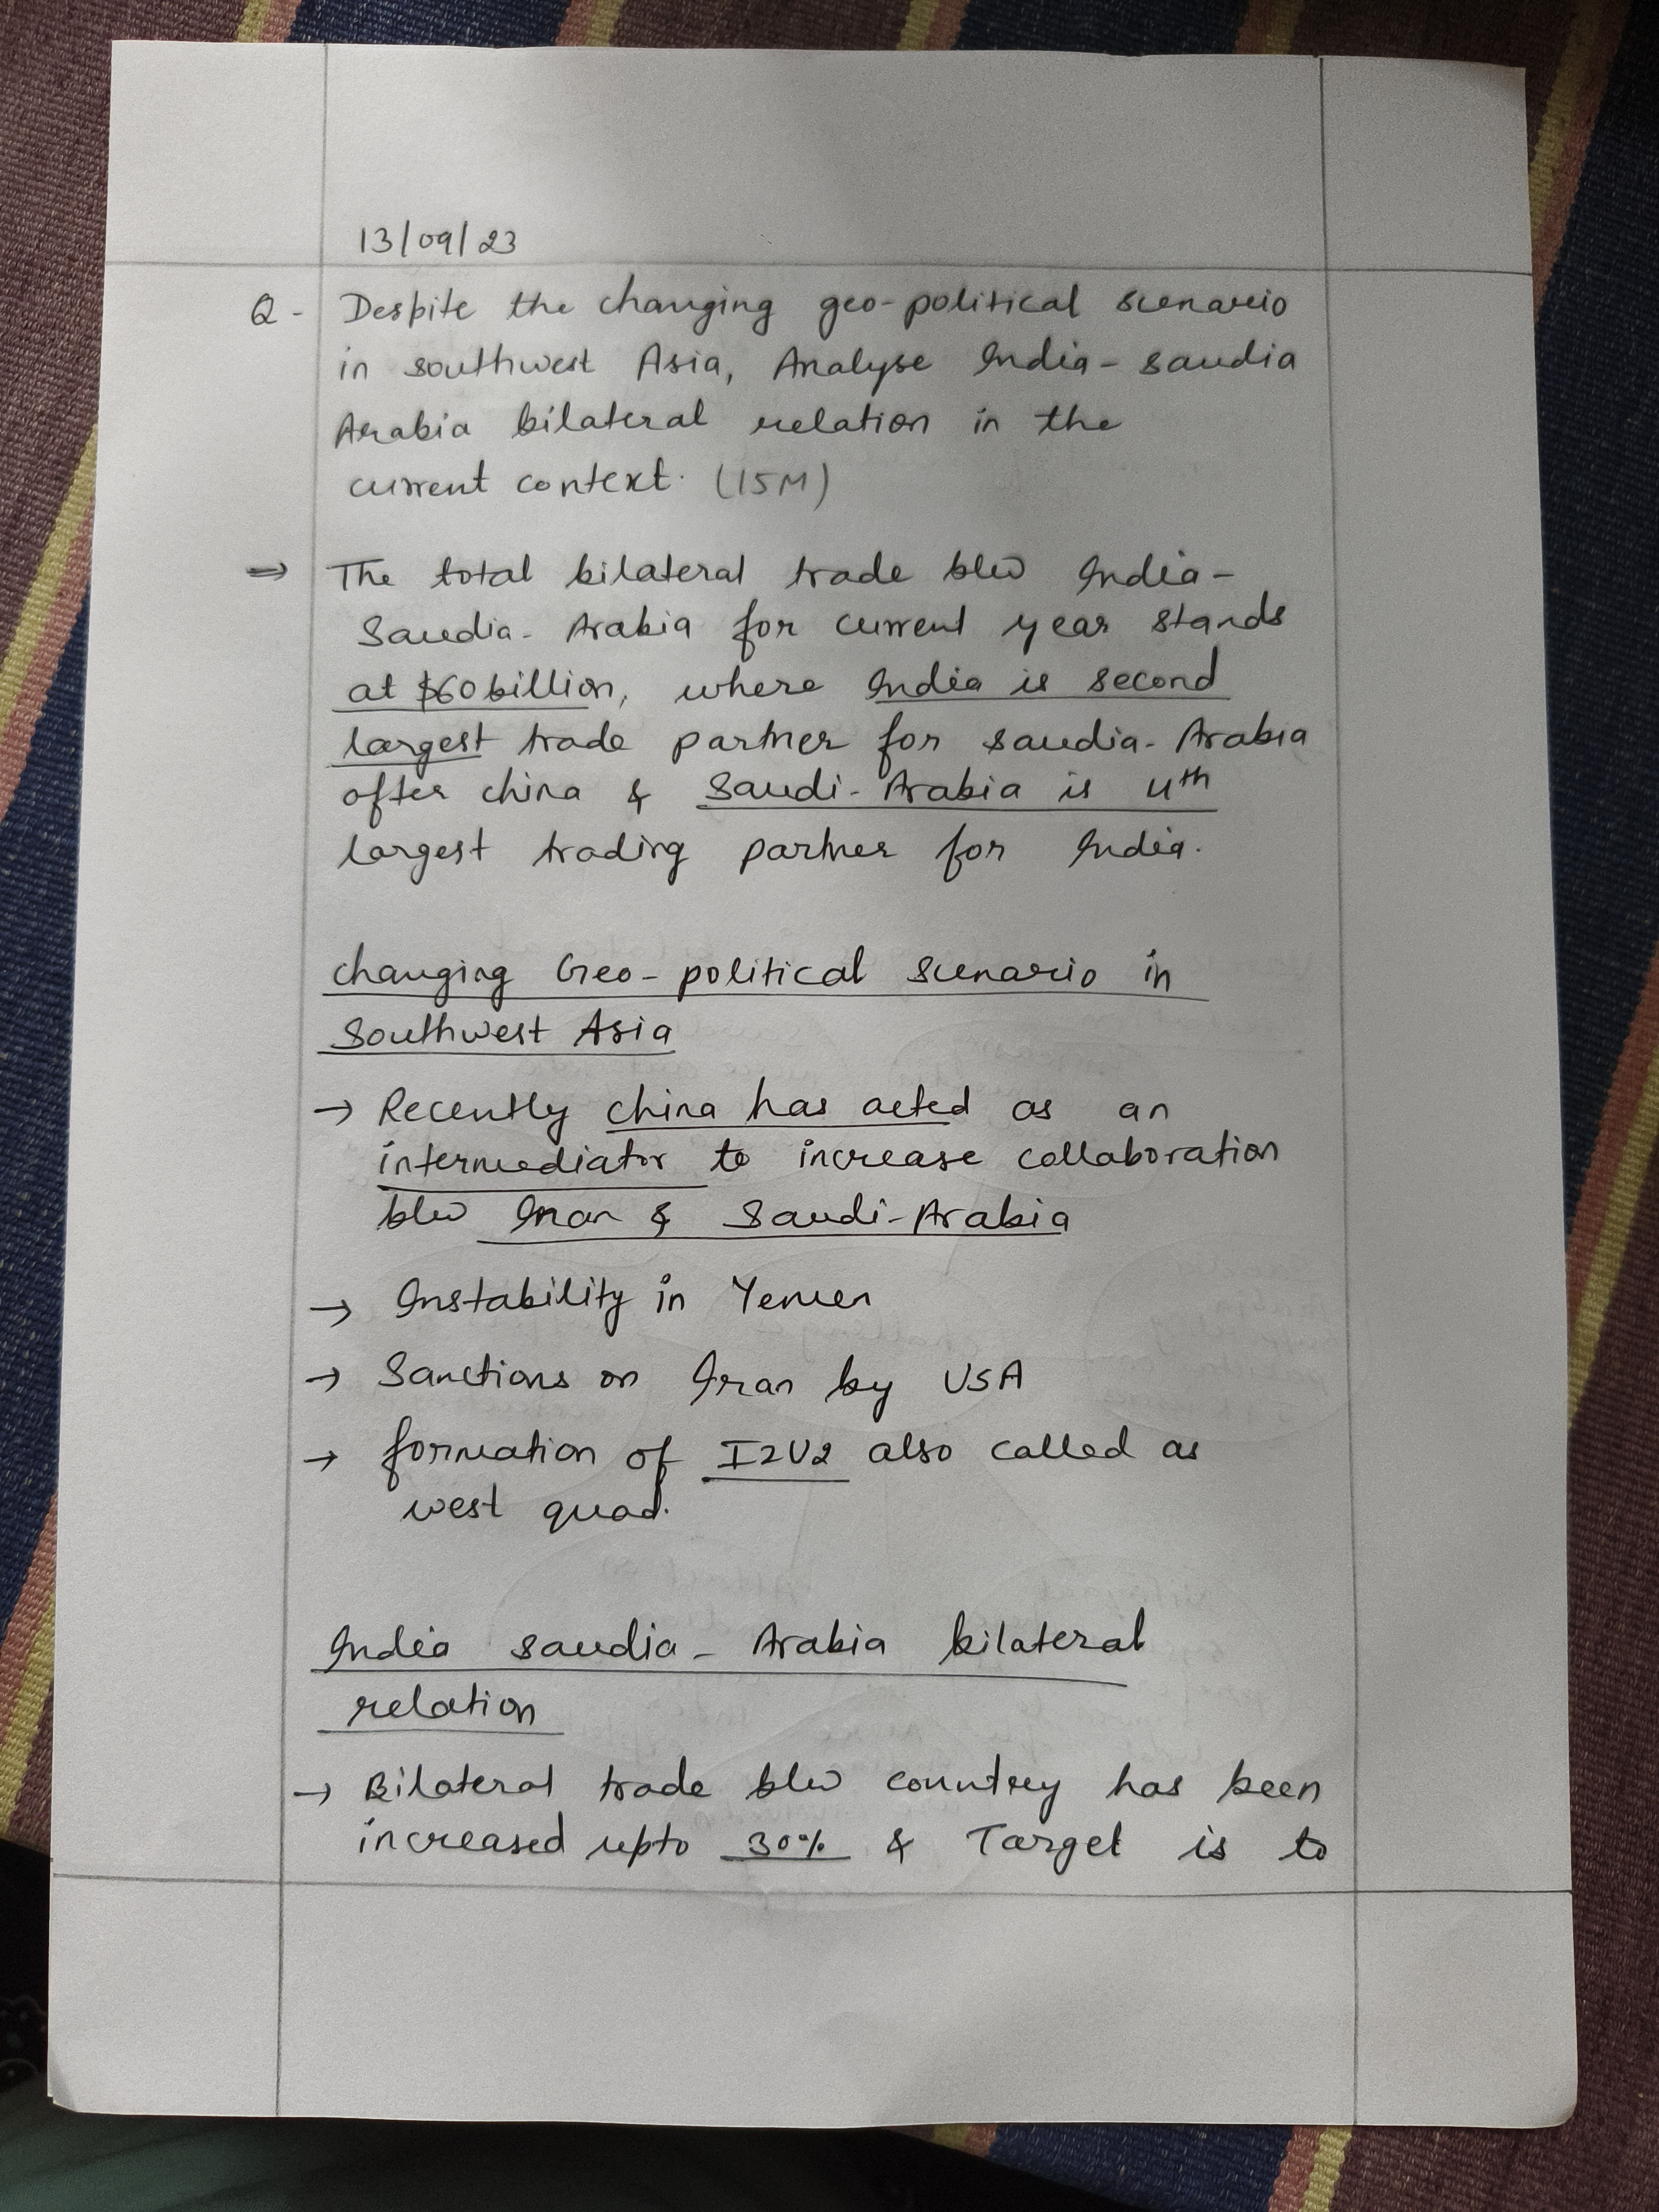 13/09/23
Q - Despite the changing geo-political scenario
in southwest Asia, Analyse India - saudia
Arabia bilateral relation in the
current context. (15M)
⇒ The total bilateral trade b/w India -
Saudia - Arabia for current year stands
at $60 billion, where India is second
largest trade partner for saudia - Arabia
after china & Saudi - Arabia is 4th
largest trading partner for India.
changing Geo - political scenario in
Southwest Asia
→ Recently china has acted as an
intermediator to increase collaboration
b/w Iran & Saudi-Arabia
→ Instability in Yemen
→ Sanctions on Iran by USA
→ formation of I2U2 also called as
west quad.
India saudia - Arabia bilateral
relation
→ Bilateral trade b/w country has been
increased upto 30% & Target is to